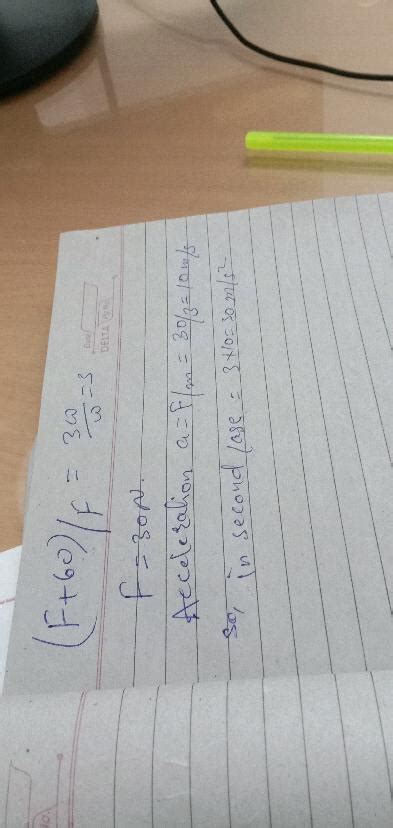 (F+60)/F = 3ω/ω = 3
F = 30N.
Acceleration a = F/m = 30/3 = 10m/s
so, in second case = 3×10 = 30m/s²
DELTA
No.